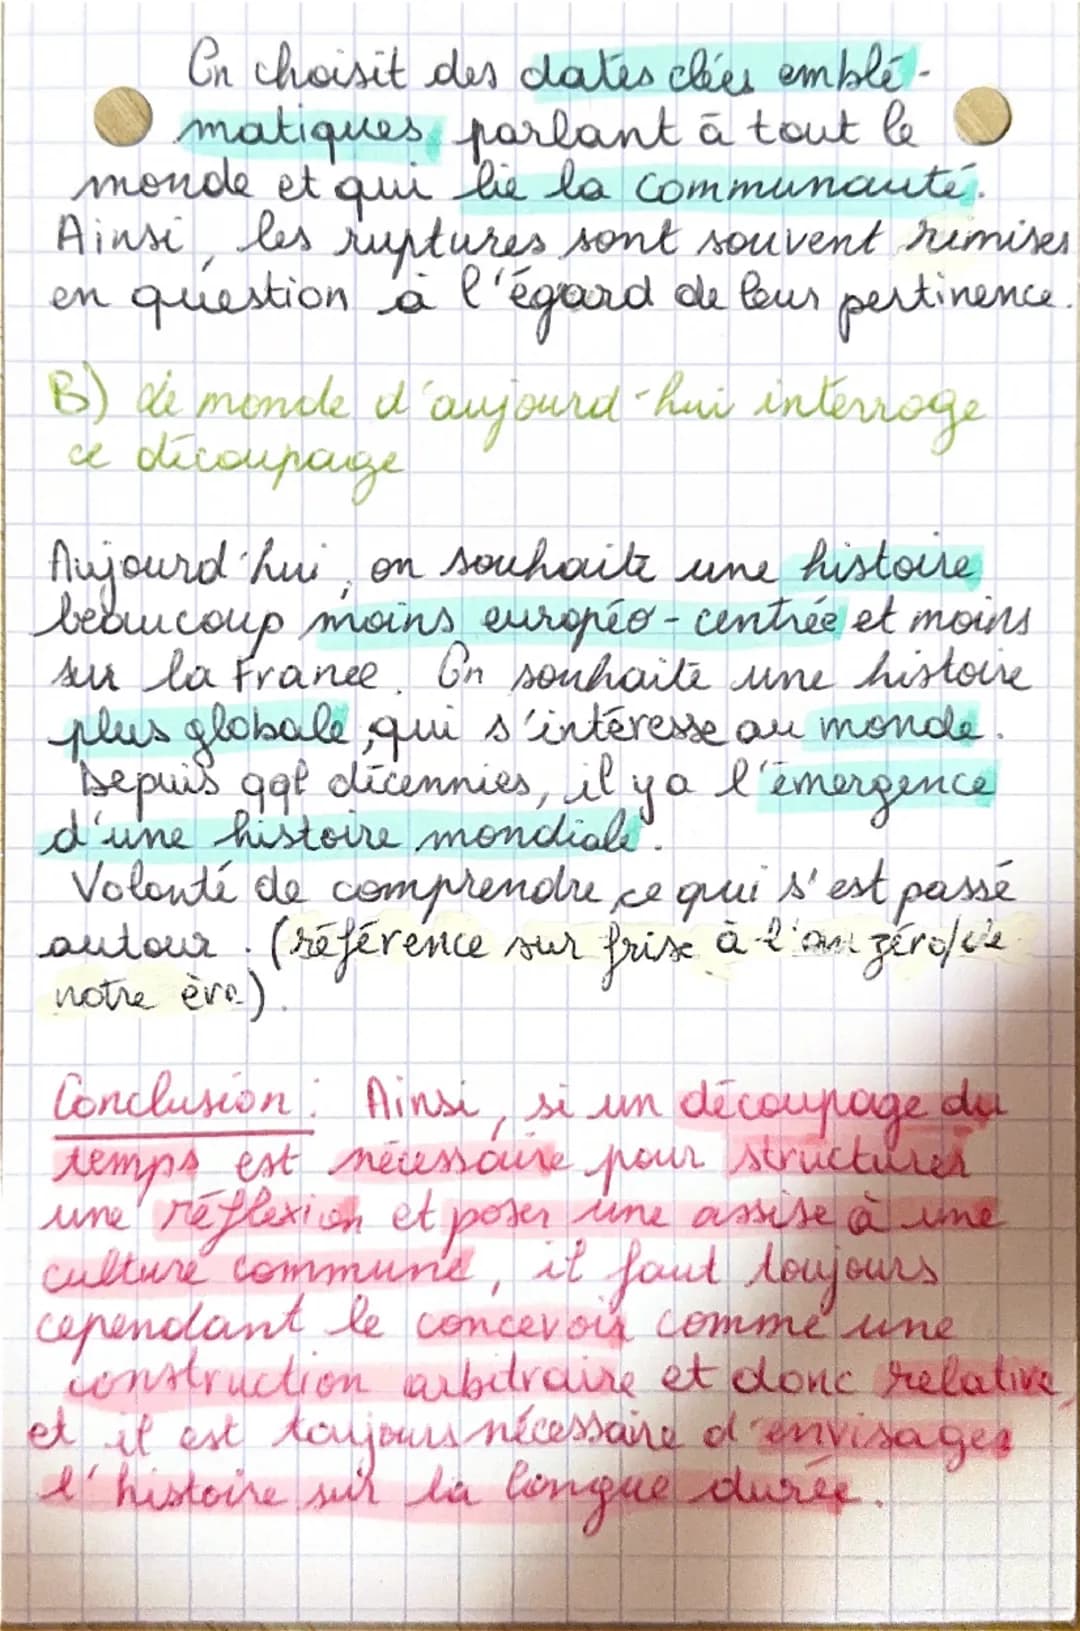 On choisit des dates clées emblé-
matiques parlant à tout le
monde et qui lie la communauté.
Ainsi, les ruptures sont souvent remises
en question à l'égard de leur pertinence.
B) Le monde d'aujourd'hui interroge
ce découpage
Aujourd'hui, on souhaite une histoire
beaucoup moins européo-centrée et moins
sur la France. On souhaite une histoire
plus globale, qui s'intéresse au monde.
Depuis qql décennies, il y a l'émergence
d'une histoire mondiale.
Volonté de comprendre ce qui s'est passé
autour. (référence sur frise à l'an zéro/de
notre ère).
Conclusion : Ainsi, si un découpage du
temps est nécessaire pour structurer
une réflexion et poser une assise à une
culture commune, il faut toujours
cependant le concevoir comme une
construction arbitraire et donc relative,
et il est toujours nécessaire d'envisager
l'histoire sur la longue durée.